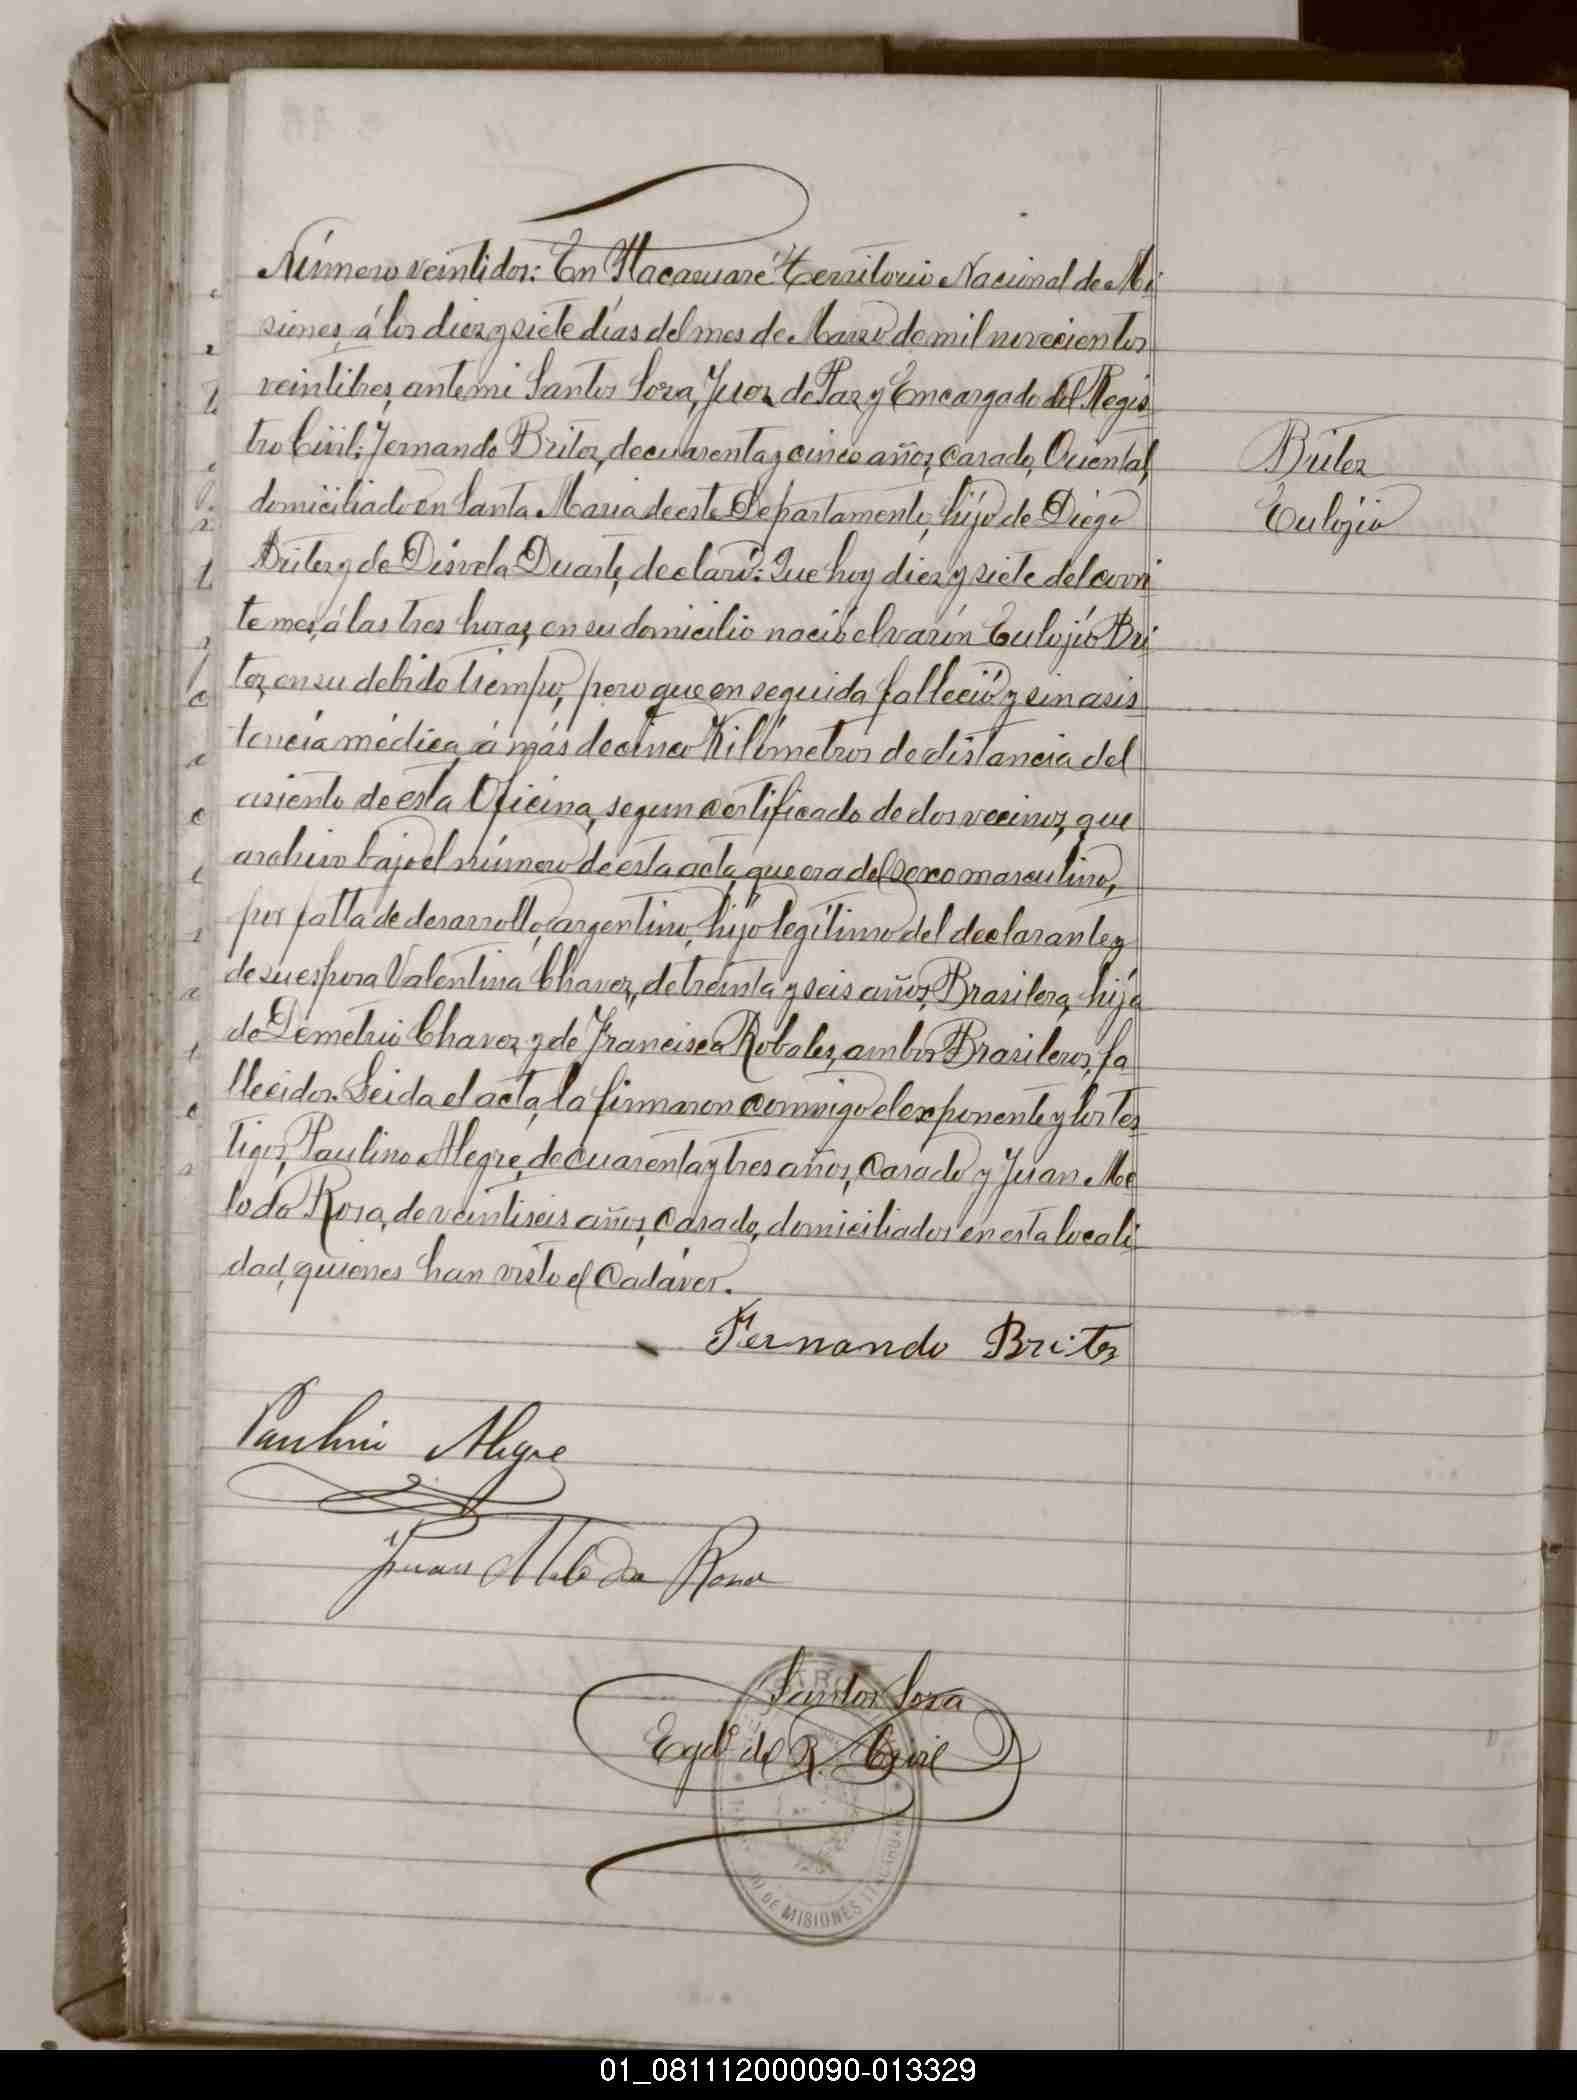 Número veintidos: En Itacaruaré Territorio Nacional de Mi
siones, á los diez y siete días del mes de Marzo de mil novecientos
veintitres, ante mi Santos Soza, Juez de Paz y Encargado del Regis
tro Civil; Fernando Britez, de cuarenta y cinco años, casado, Oriental,
domiciliado en Santa Maria de este Departamento, hijo de Diego
Britez y de Disvela Duarte, declaró: Que hoy diez y siete del corri
te mes, á las tres horas, en su domicilio nació el varón Eulojio Bri
tez, en su debido tiempo, pero que en seguida falleció y sin asis
tencia médica, á más de cinco Kilómetros de distancia del
asiento de esta Oficina, segun certificado de dos vecinos, que
archivo bajo el número de esta acta, que era del sexo masculino,
por falta de desarrollo, argentino, hijo legítimo del declarante y
de su esposa Valentina Chavez, de treinta y seis años, Brasilera, hija
de Demetrio Chavez y de Francisca Robales, ambos Brasileros, fa
llecidos. Leida el acta, la firmaron conmigo el exponente y los tes
tigos, Paulino Alegre, de cuarenta y tres años, Casado y Juan Me
lo da Rosa, de veintiseis años, Casado, domiciliados en esta locali
dad, quienes han visto el Cadáver.
Britez
Eulojio
Fernando Britez
Paulino Alegre
Juan Melo da Rosa
Santos Soza
Egdo. del R. Civil
DE MISIONES
01_081112000090-013329